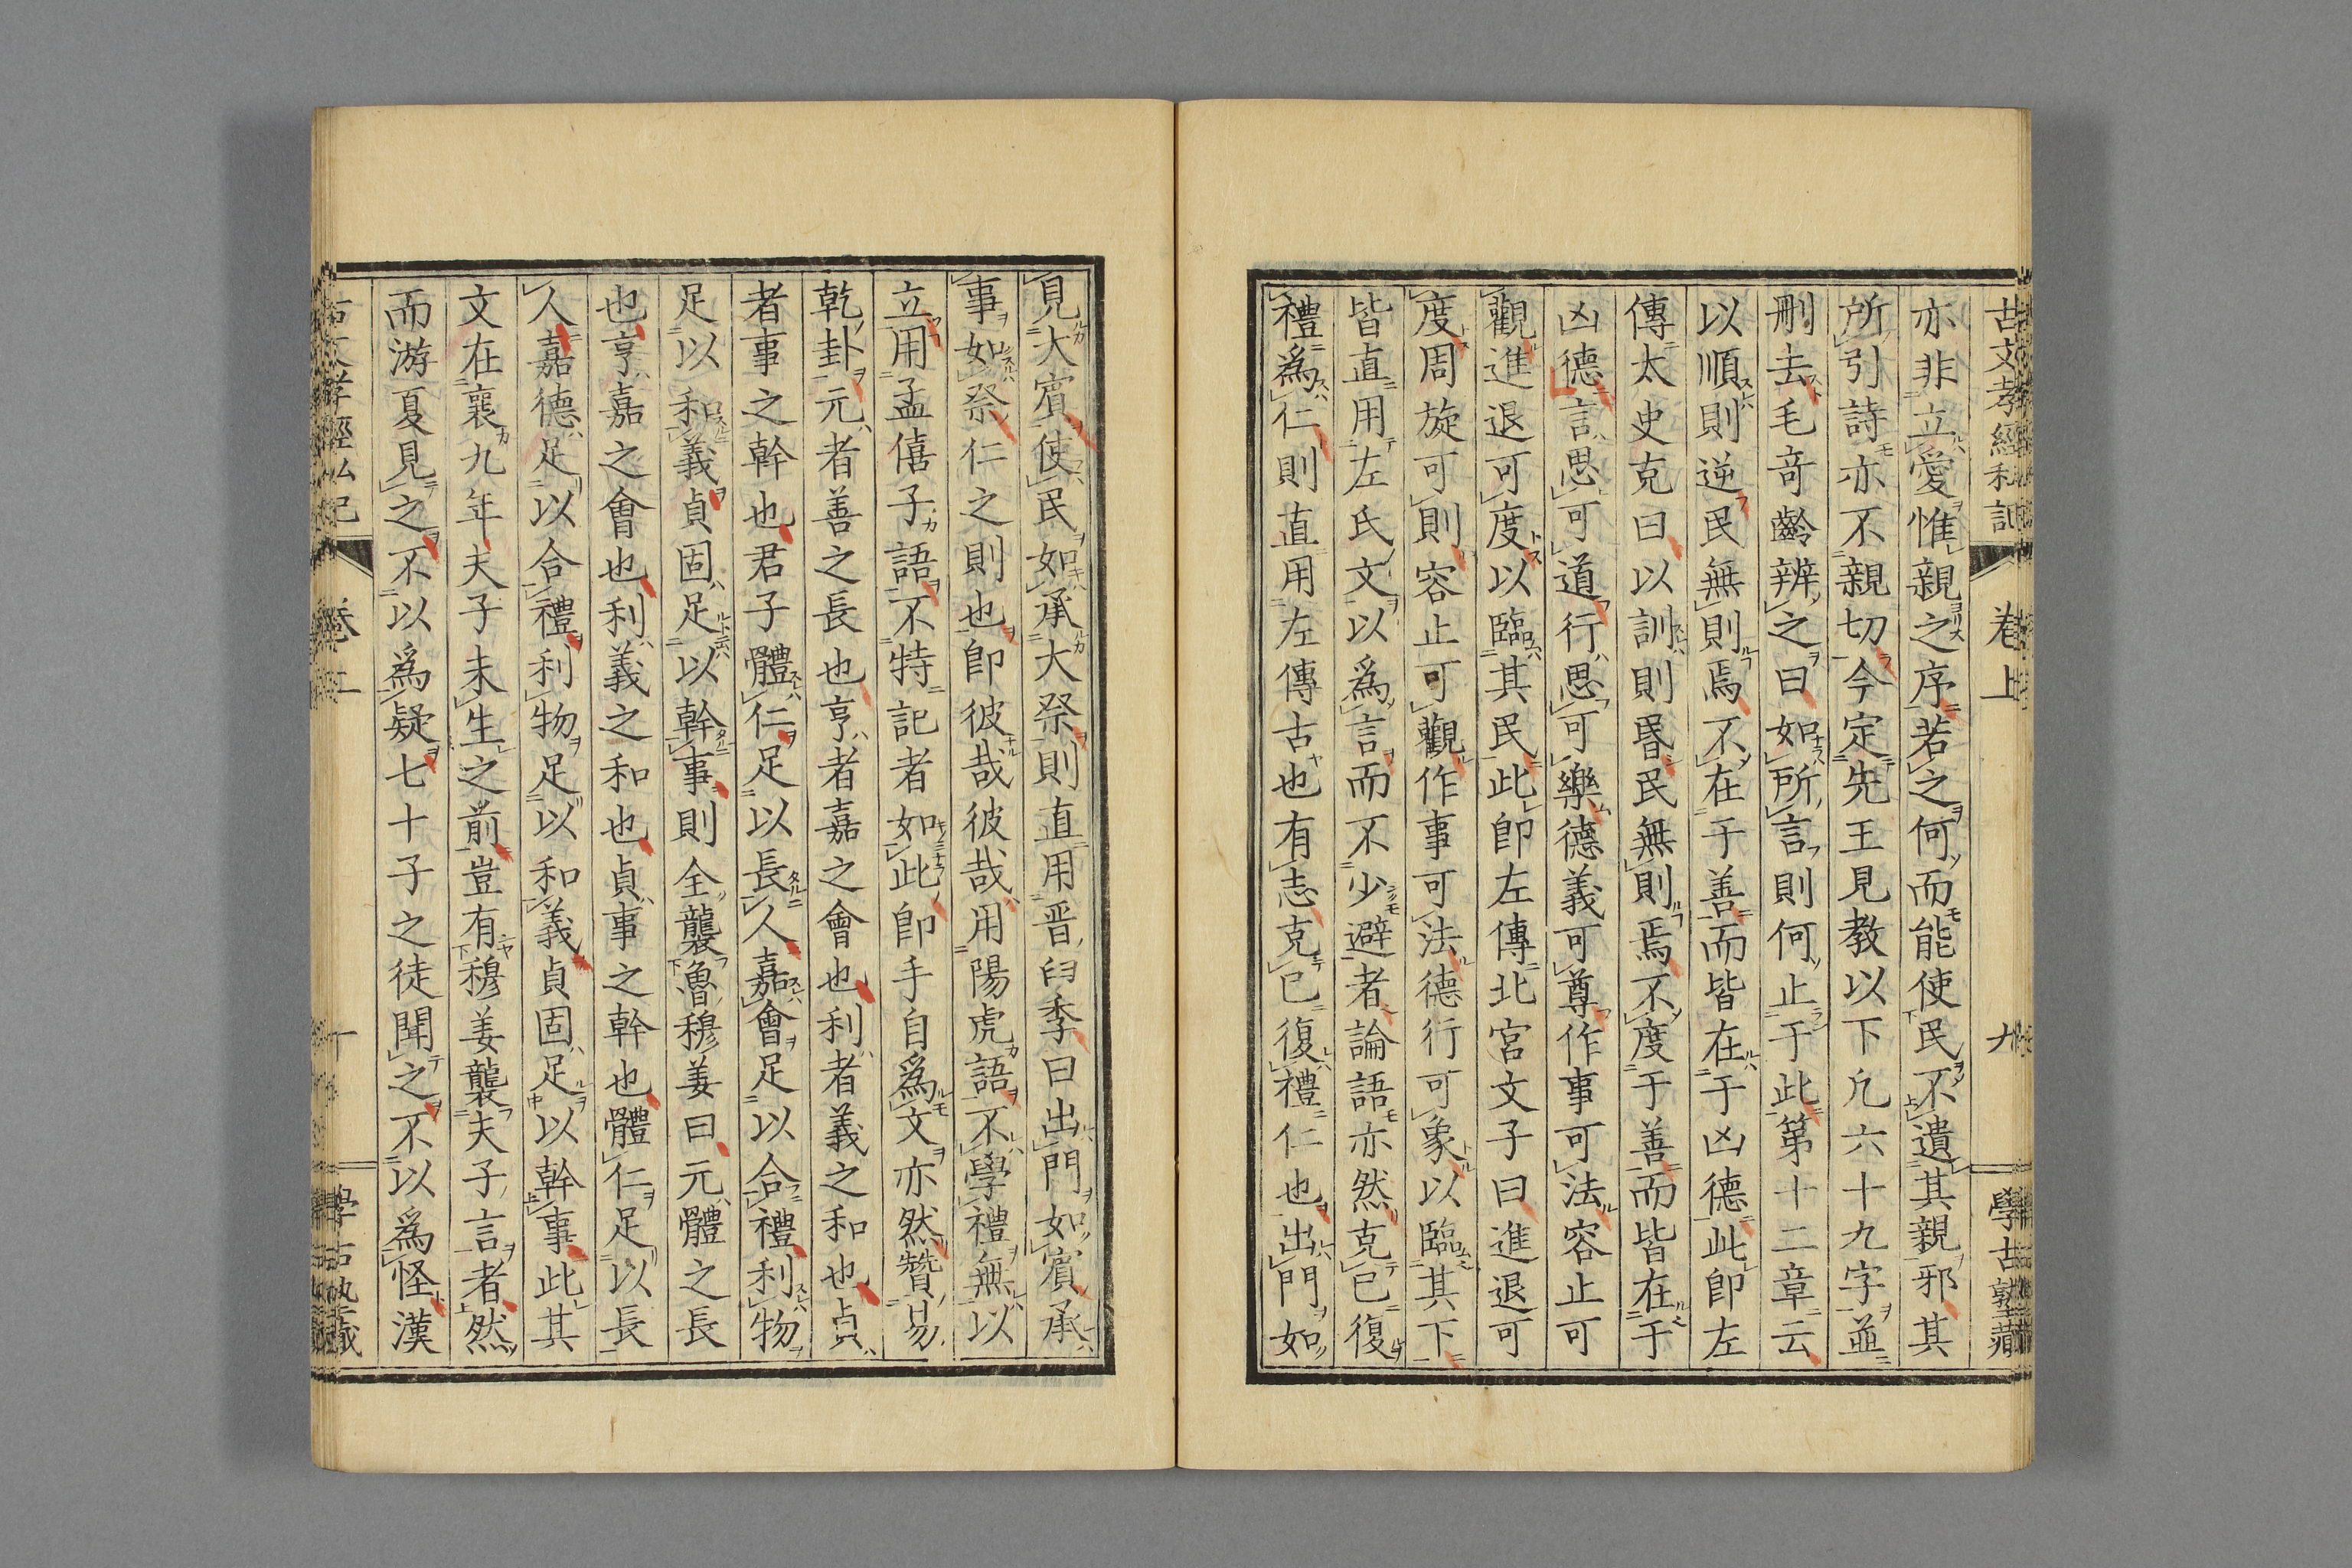 古文孝經私記 卷上 九 學古塾藏
亦非立愛惟親之序若之何而能使民不遺其親邪其
所引詩亦不親切今定先王見教以下凢六十九字並
刪去毛奇齡辨之曰如所言則何止于此第十二章云
以順則逆民無則焉不在于善而皆在于凶德此卽左
傳太史克曰以訓則昬民無則焉不度于善而皆在于
凶德言思可道行思可樂德義可尊作事可法容止可
觀進退可度以臨其民此卽左傳北宮文子曰進退可
度周旋可則容止可觀作事可法德行可象以臨其下
皆直用左氏文以爲言而不少避者論語亦然克已復
禮爲仁則直用左傳古也有志克已復禮仁也出門如
見大賓使民如承大祭則直用晋臼季曰出門如賓承
事如祭仁之則也卽彼哉彼哉用陽虎語不學禮無以
立用孟僖子語不特記者如此卽手自爲文亦然贊易
乾卦元者善之長也亨者嘉之會也利者義之和也貞
者事之幹也君子體仁足以長人嘉會足以合禮利物
足以和義貞固足以幹事則全襲魯穆姜曰元體之長
也亨嘉之會也利義之和也貞事之幹也體仁足以長
人嘉德足以合禮利物足以和義貞固足以幹事此其
文在襄九年夫子未生之前豈有穆姜襲夫子言者然
而游夏見之不以爲疑七十子之徒聞之不以爲怪漢